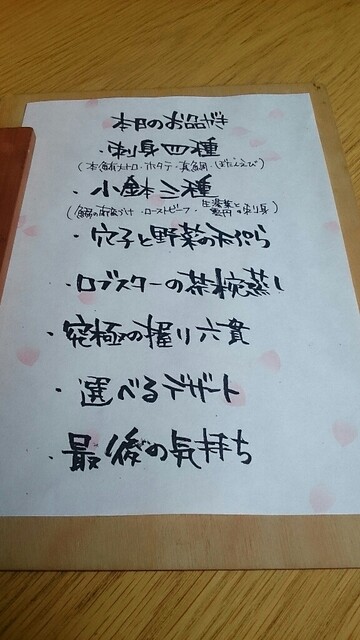 本日のお品がき
・刺身四種
(本鮪大トロ・ホタテ・真鯛・ぼたんえび)
・小鉢三種
ローストビーフ・生湯葉と
・穴子と野菜の天ぷら
・ロブスターの茶椀蒸し
・究極の握り六貫
・選べるデザート
・最後の気持ち